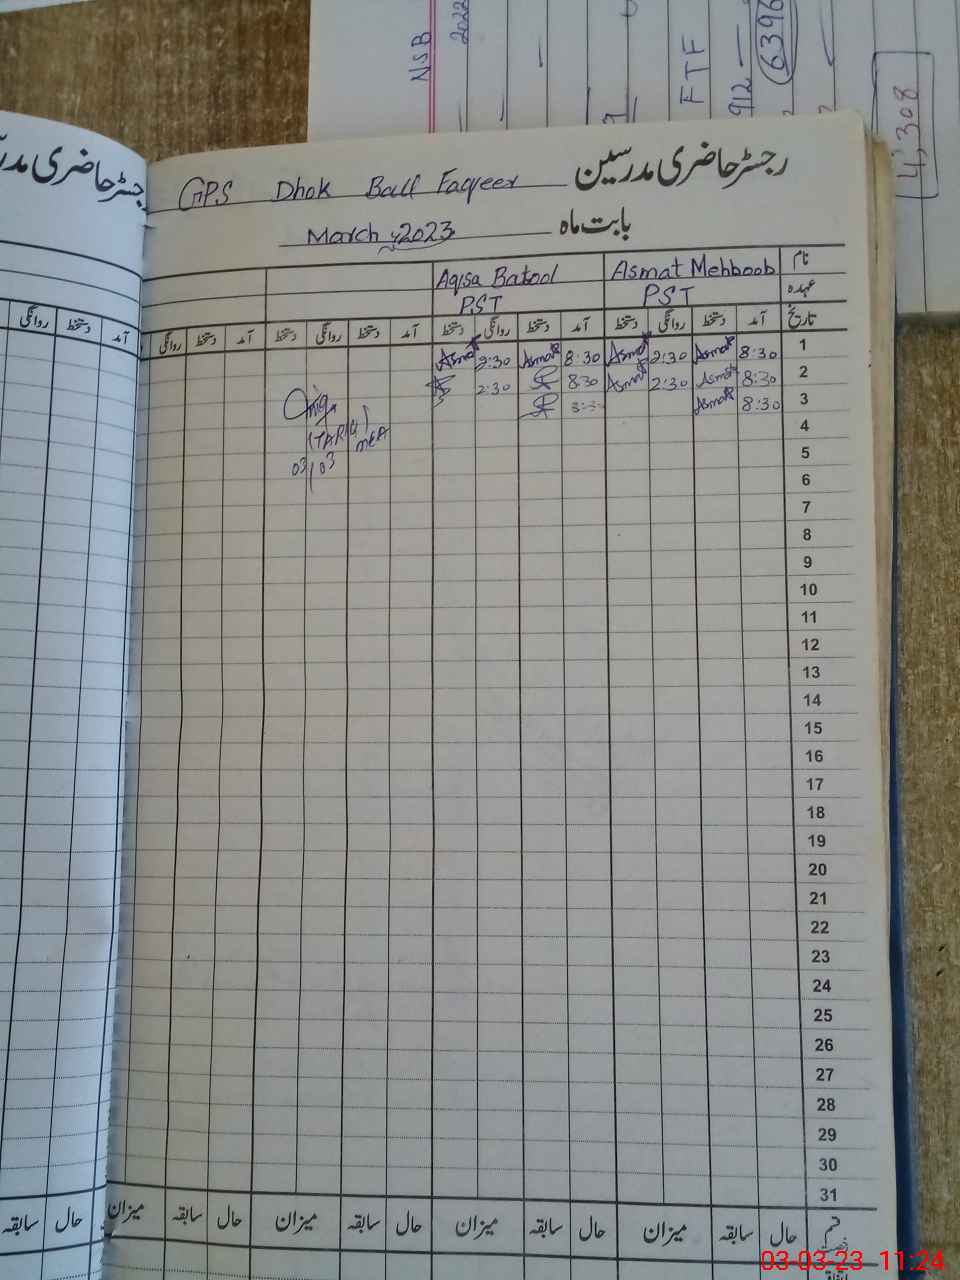 NSB
2022
FTF
912
6396
4,308
رجسٹر حاضری مدرسین
GPS Dhok Ball Faqeer
بابت ماہ March 2023
نام Asmat Mehboob Aqsa Batool
عہدہ PST PST
تاریخ آمد دستخط روانگی دستخط آمد دستخط روانگی دستخط آمد دستخط روانگی دستخط آمد دستخط روانگی
1 8:30 Asmat 2:30 Asmat 8:30 Asmat 2:30 Asmat
2 8:30 Asmat 2:30 Asmat 8:30 2:30
3 8:30 Asmat 8:30
4
(TARIQ)
MEA
5
03/03
6
7
8
9
10
11
12
13
14
15
16
17
18
19
20
21
22
23
24
25
26
27
28
29
30
31
حال سابقہ میزان حال سابقہ میزان حال سابقہ میزان حال سابقہ میزان
رجسٹر حاضری
آمد دستخط روانگی
حال سابقہ
03-03-23 11:24